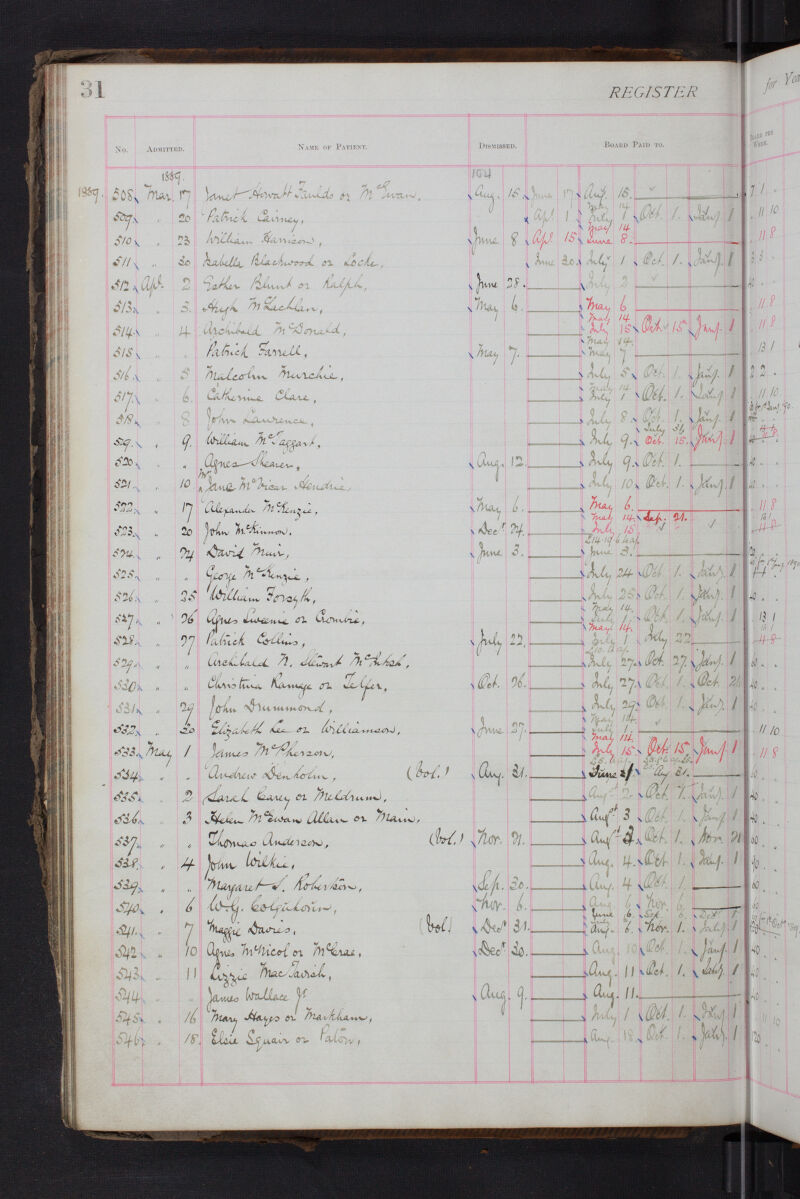 31 REGISTER for
No. Admitted. Name of Patient. Dismissed. Board Paid to. Week.
1889. 104
1889. 508 Mar. 17 Janet Howatt Faulds or McEwan. Aug. 15. June 17 Aug. 15. 7 1
May 14
509 " 20 Patrick Cairney, Apl. 1 July 1 Oct. 1. Jany. 1 11 10
May 14
510 " 23 William Harrison, June 8 Apl. 15 June 8. 11 8
511 " 30 Isabella Blackwood or Locke, June 30 July 1 Oct. 1. Jany. 1 3 3
512 Apl. 2 Esther Blunt or Ralph, June 28. July 2 40
513 " 3. Hugh McLachlan, May 6. May 6 11 8
May 14
514 " 4 Archibald McDonald, July 15 Oct. 15 Jany. 1 11 8
May 14.
515 " " Patrick Farrell, May 7. May 7 13 1
516 " 5 Malcolm Murchie, July 5 Oct. 1. Jany. 1 2 2
May 14
517 " 6. Catherine Clare, July 1 Oct. 1. Jany. 1 11 10
518 " 8 John Lawrence, July 8 Oct. 1. Jany. 1
July 31
519 " 9. William McTaggart, July 9 Oct. 15. Jany. 1
520 " " Agnes Shearer, Aug. 12. July 9 Oct. 1. 40
521 " 10 Mrs Jane McVicar Hendrie, July 10 Oct. 1. Jany. 1 40
522 " 17 Alexander McKenzie, May 6. May 6. 11 8
May 14 Sep. 21. 13 1
523 " 20 John McKinnon. Decr. 24. July 15 11 8
524 " 24 David Muir, June 3. June 3.
525 " " George McKenzie, July 24 Oct. 1. Jany. 1
526 " 25 William Forsyth, July 25 Oct. 1. Jany. 1 40
May 14.
527 " 26 Agnes or Crombie, July 1 Oct. 1. Jany. 1 13 1
May 14.
528 " 27 Patrick Collins, July 22. July 1 July 22 11 8
529 " " Archibald N. Stewart McIntosh, July 27 Oct. 27 Jany. 1 60
530 " " Christina Ramage or Telfer, Oct. 26. July 27 Oct. 1. Oct. 26 40
531 " 29 John Drummond, July 29 Oct. 1. Jany. 1 40
May 14.
532 " 30 Elizabeth Lee or Williamson, June 27. July 1 11 10
May 14.
533 May 1 James McPherson, July 15 Oct. 15 Jany. 1 11 8
534 " " Andrew Denholm, (Vol.) Aug. 31. June 21 Aug. 31. 60
535 " 2 Sarah Carey or Meldrum, Aug. 2. Oct. 1. Jany. 1 40
536 " 3 Helen McEwan Allan or Main, Augst. 3 Oct. 1. Jany. 1 40
537 " " Thomas Anderson, (Vol.) Nov. 21. Augst. 3 Oct. 1. Nov. 21 60
538 " 4 John Wilkie, Aug. 4 Oct. 1. Jany. 1 90
539 " " Margaret S. Robertson, Sep. 30. Aug. 4 Oct. 1. 60
540 " 6 W. G. Colquhoun, Nov. 6. Aug. 6 Nov. 6 60
June 6. Sep. 6. Oct. 1
541 " 7 Maggie Davies, (Vol.) Decr. 31. Aug. 6. Nov. 1. Jany. 1
542 " 10 Agnes McNicol or McCrae, Decr. 30. Aug. 10 Oct. 1. Jany. 1 40
543 " 11 Lizzie MacTavish, Aug. 11 Oct. 1. Jany. 1 40
544 " " James Wallace Jr. Aug. 9. Aug. 11. 40
545 " 16 Mary Hayes or Markham, July 1 Oct. 1. Jany. 1 11 10
546 " 18. Elsie Squair or Paton, Aug. 18 Oct. 1. Jany. 1 120